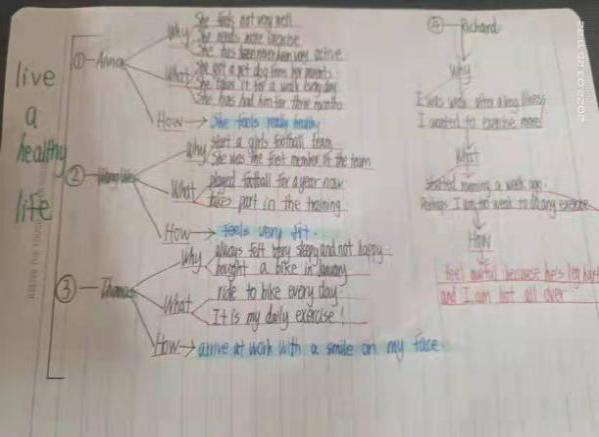 live
a
healthy
life
① Anna
Why
She feels not very well
She needs more exercise
She has been very active
What
She got a pet dog from her parents
She takes it for a walk every day
She has had him for three months
How → She feels really healthy
②
Why
start a girls football team
She was the first member of the team
What
played football for a year now
takes part in the training
How → feels very fit.
③ Thomas
Why
always felt very sleepy and not happy
bought a bike in January
What
ride to bike every day
It is my daily exercise!
How → arrive at work with a smile on my face
④ Richard
Why
I was weak after a long illness
I wanted to exercise more
What
Started running a week ago
Perhaps I am too weak to do any exercise
How
feel awful because he's leg hurt
and I am hot all over